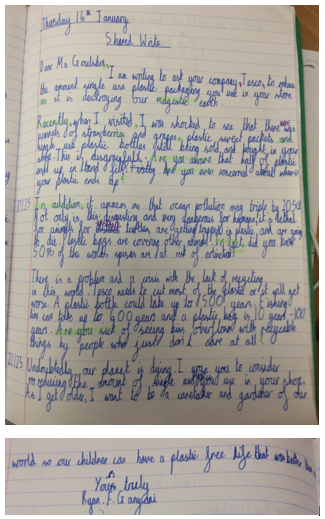 Thursday 16th January
Shared Write
Dear Ms Goulsbra,
I am writing to ask your company, Tesco, to reduce
the amount single use plastic packaging you use in your store
as it is destroying our majestic earth.
Recently, when I visited, I was shocked to see that there were
punnets of strawberries and grapes, plastic sweet packets and
single use plastic bottles still being sold and bought in your
shop. This is disgraceful. Are you aware that half of plastic
ends up in land fills? Firstly are you ever concerned about where
your plastic ends up?
In addition, it appears me that ocean pollution may triple by 2050!
Not only is this disgusting and very dangerous for humans, it is lethal
for animals too. Turtles are getting trapped in plastic and are going
to die. Plastic bags are covering other animals. In fact did you know
50% of the worlds species are at risk of extinction?
There is a problem and a crisis with the lack of recycling
in this world. Tesco needs to cut most of the plastic or it will get
worse. A plastic bottle could take up to 1500 years, fishing
line can take up to 600 year and a plastic bag is 10 year - 100
years. Are you sick of seeing bins overflown with recycable
things by people who just don't care at all?
Undoubtedly our planet is dying. I urge you to consider
reducing the amount of single use in your shop.
As I get older, I want to be a caretaker and gardener of our
world so our children can have a plastic free life that was better than
Yours truly
Ryan. F. Gangani